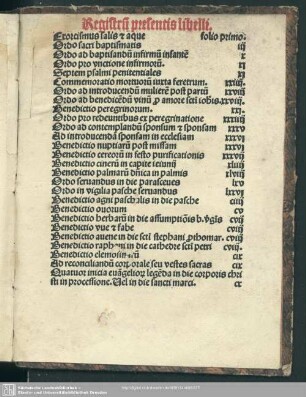 Registrū presentis libelli.
Exorcismus salis et aque folio primo.
Ordo sacri baptismatis iij
Ordo ad baptisandū infirmū infantē x
Ordo pro vnctione infirmorū. xj
Septem psalmi penitentiales xj
Commemoratio mortuorū iuxta feretrum. xxiiij.
Ordo ad introducendū mulierē post partū xxviij
Ordo ad benedicēdū vinū p amore scti iohis. xxviij.
Benedictio peregrinorum. xxx.
Ordo pro redeuntibus ex peregrinatione xxxiij
Ordo ad contemplandū sponsum et sponsam xxxv
Ad introducendā sponsam in ecclesiam xxxvi
Benedictio nuptiarū post missam xxxvj
Benedictio cereorū in festo purificationis xxxvij
Benedictio cinerū in capite ieiunij xliij
Benedictio palmarū dnica in palmis xlviij
Ordo seruandus in die parasceues lxv
Ordo in vigilia pasche seruandus lxxvj
Benedictio agni paschalis in die pasche ciiij
Benedictio ouorum cv
Benedictio herbarū in die assumptiōis b. vgis cvij
Benedictio vue et fabe cvij
Benedictio auene in die scti stephani pthomar. cviij
Benedictio raphani in die cathedre scti petri cviij.
Benedictio elemosinarū cix
Ad reconciliandū corporale seu vestes sacras cix
Quatuor inicia euāgeliorū legēda in die corporis chri
sti in processione. Uel in die sancti marci. cx.